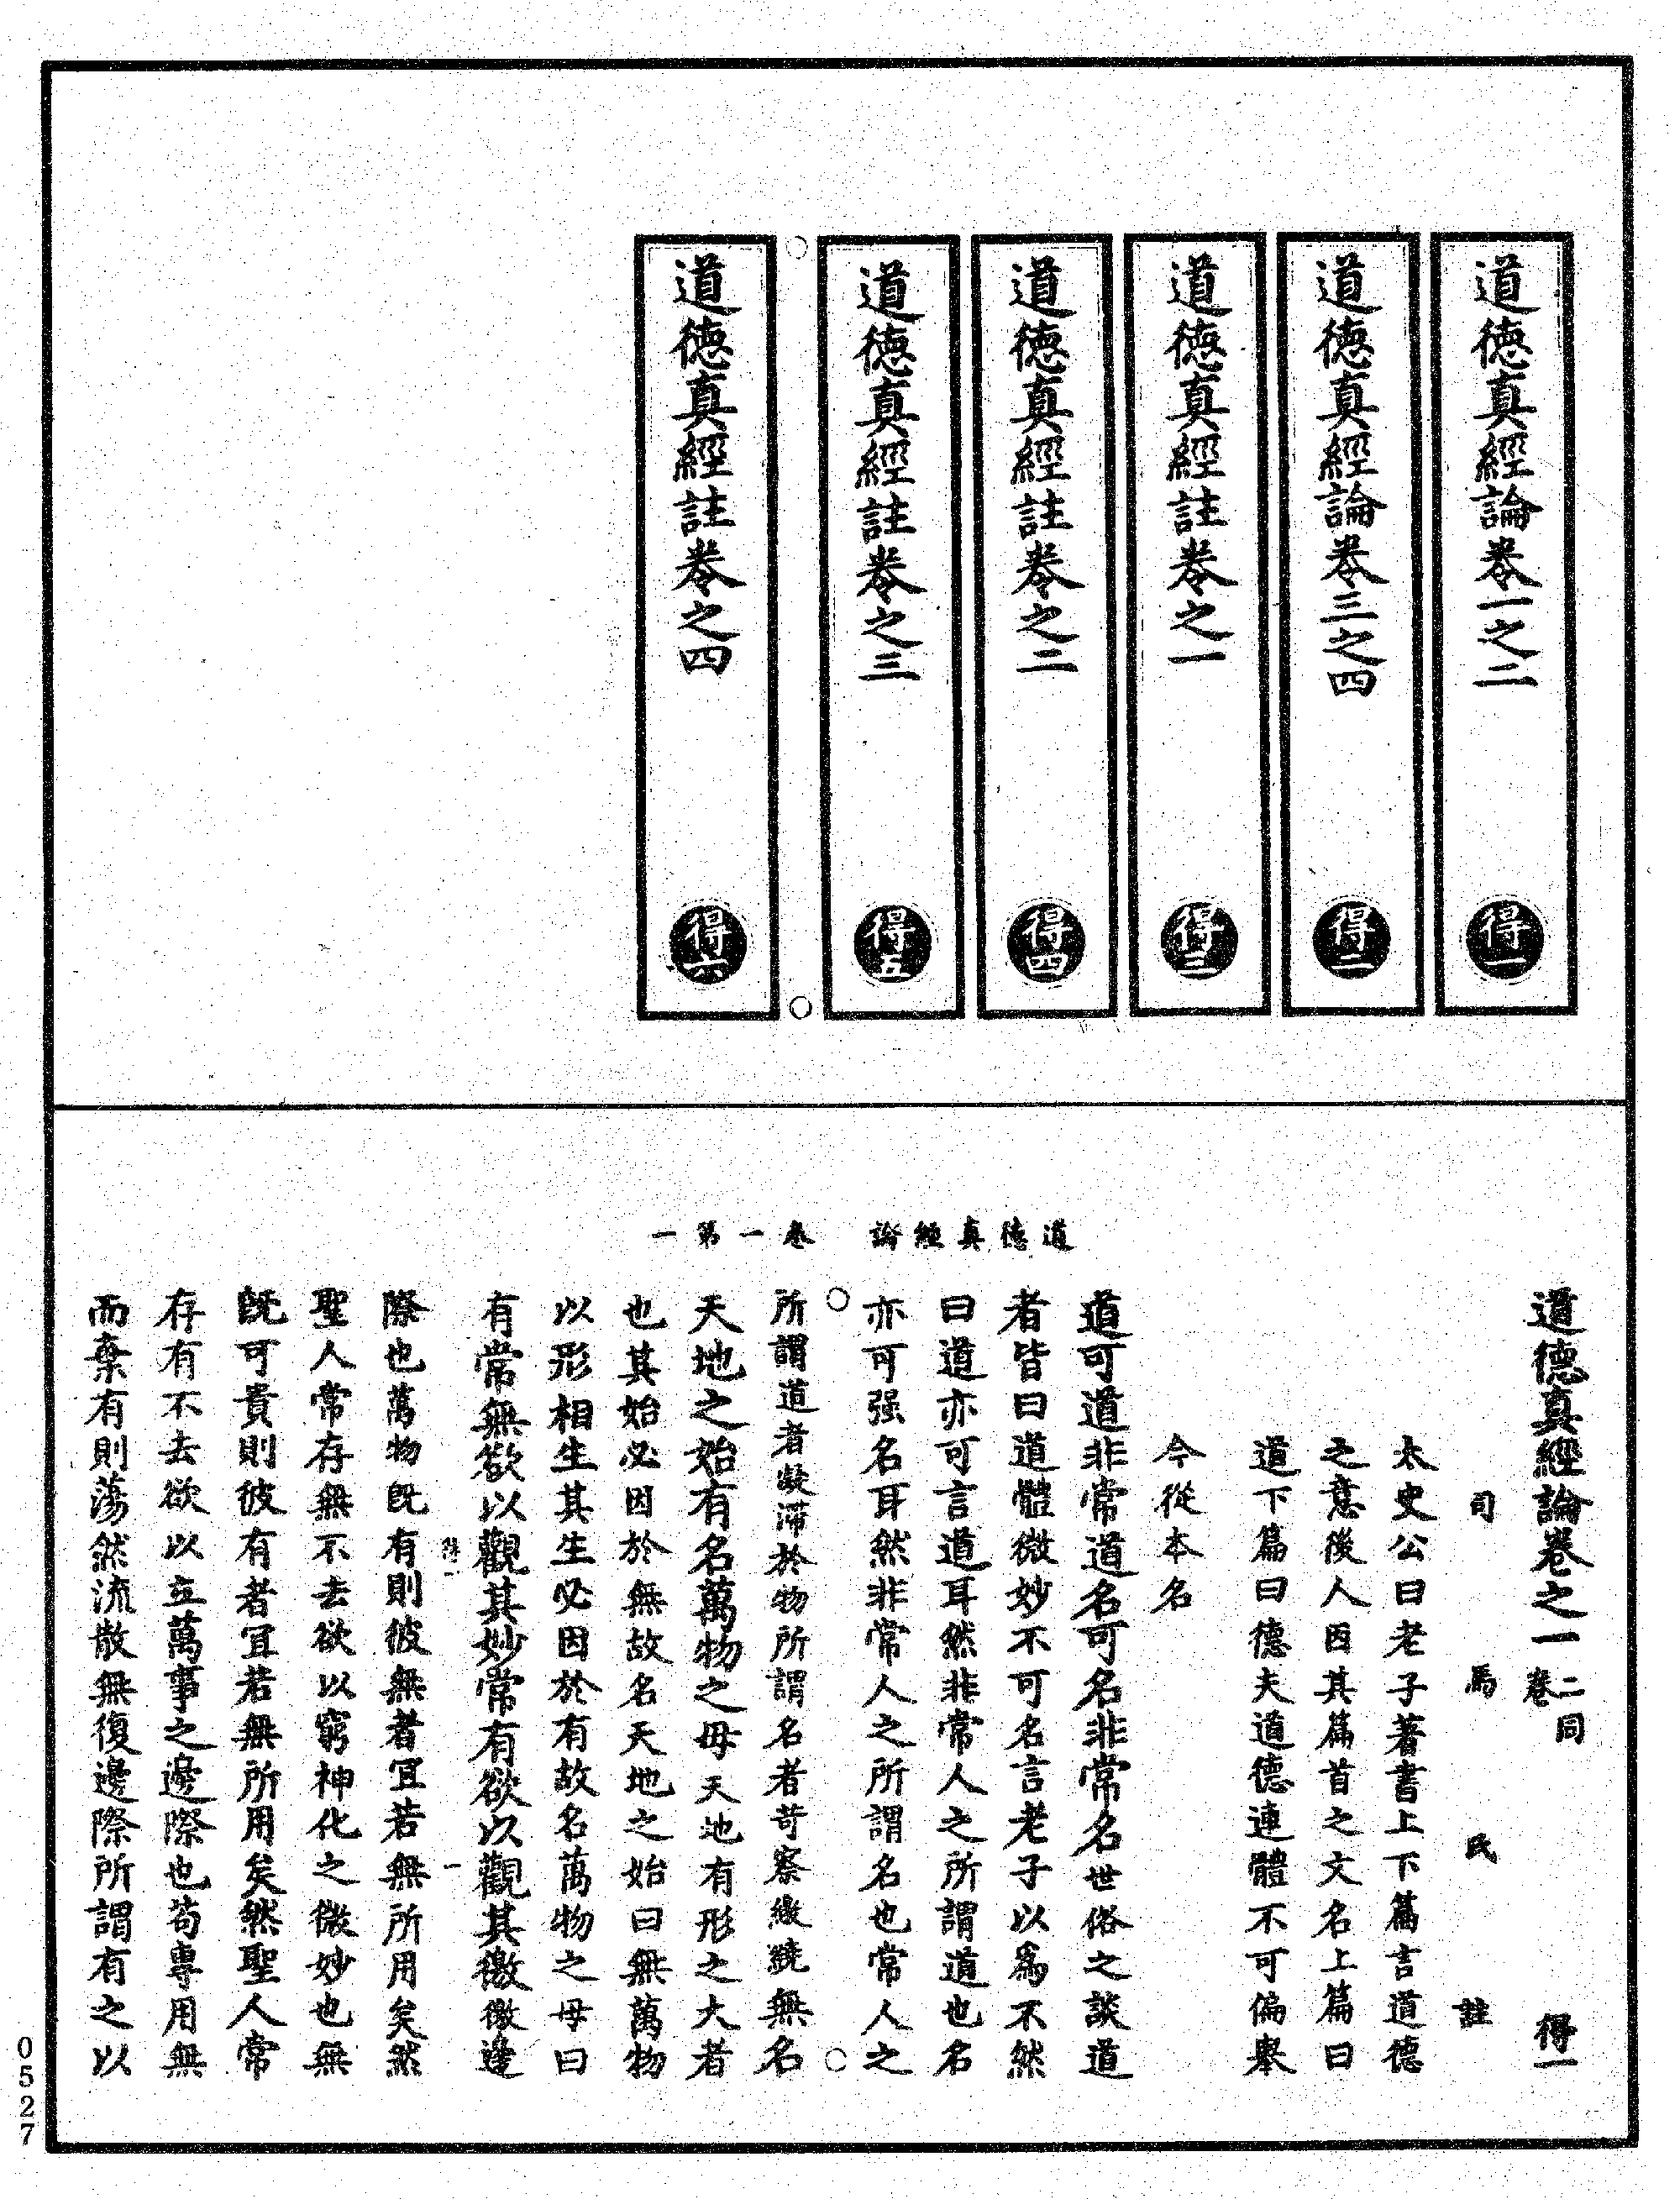 道德真經論卷一之二 得一
道德真經論卷三之四 得二
道德真經註卷之一 得三
道德真經註卷之二 得四
道德真經註卷之三 得五
道德真經註卷之四 得六
道德真經論 卷一 第一
道德真經論卷之一 二同卷 得一
司馬氏註
太史公曰老子著書上下篇言道德
之意後人因其篇首之文名上篇曰
道下篇曰德夫道德連體不可偏舉
今從本名
道可道非常道名可名非常名世俗之談道
者皆曰道體微妙不可名言老子以為不然
曰道亦可言道耳然非常人之所謂道也名
亦可强名耳然非常人之所謂名也常人之
所謂道者凝滯於物所謂名者苛察繳繞無名
天地之始有名萬物之母天地有形之大者
也其始必因於無故名天地之始曰無萬物
以形相生其生必因於有故名萬物之母曰
有常無欲以觀其妙常有欲以觀其徼徼邊
得一 一
際也萬物既有則彼無者冝若無所用矣然
聖人常存無不去欲以窮神化之微妙也無
既可貴則彼有者冝若無所用矣然聖人常
存有不去欲以立萬事之邊際也苟專用無
而棄有則蕩然流散無復邊際所謂有之以
0527